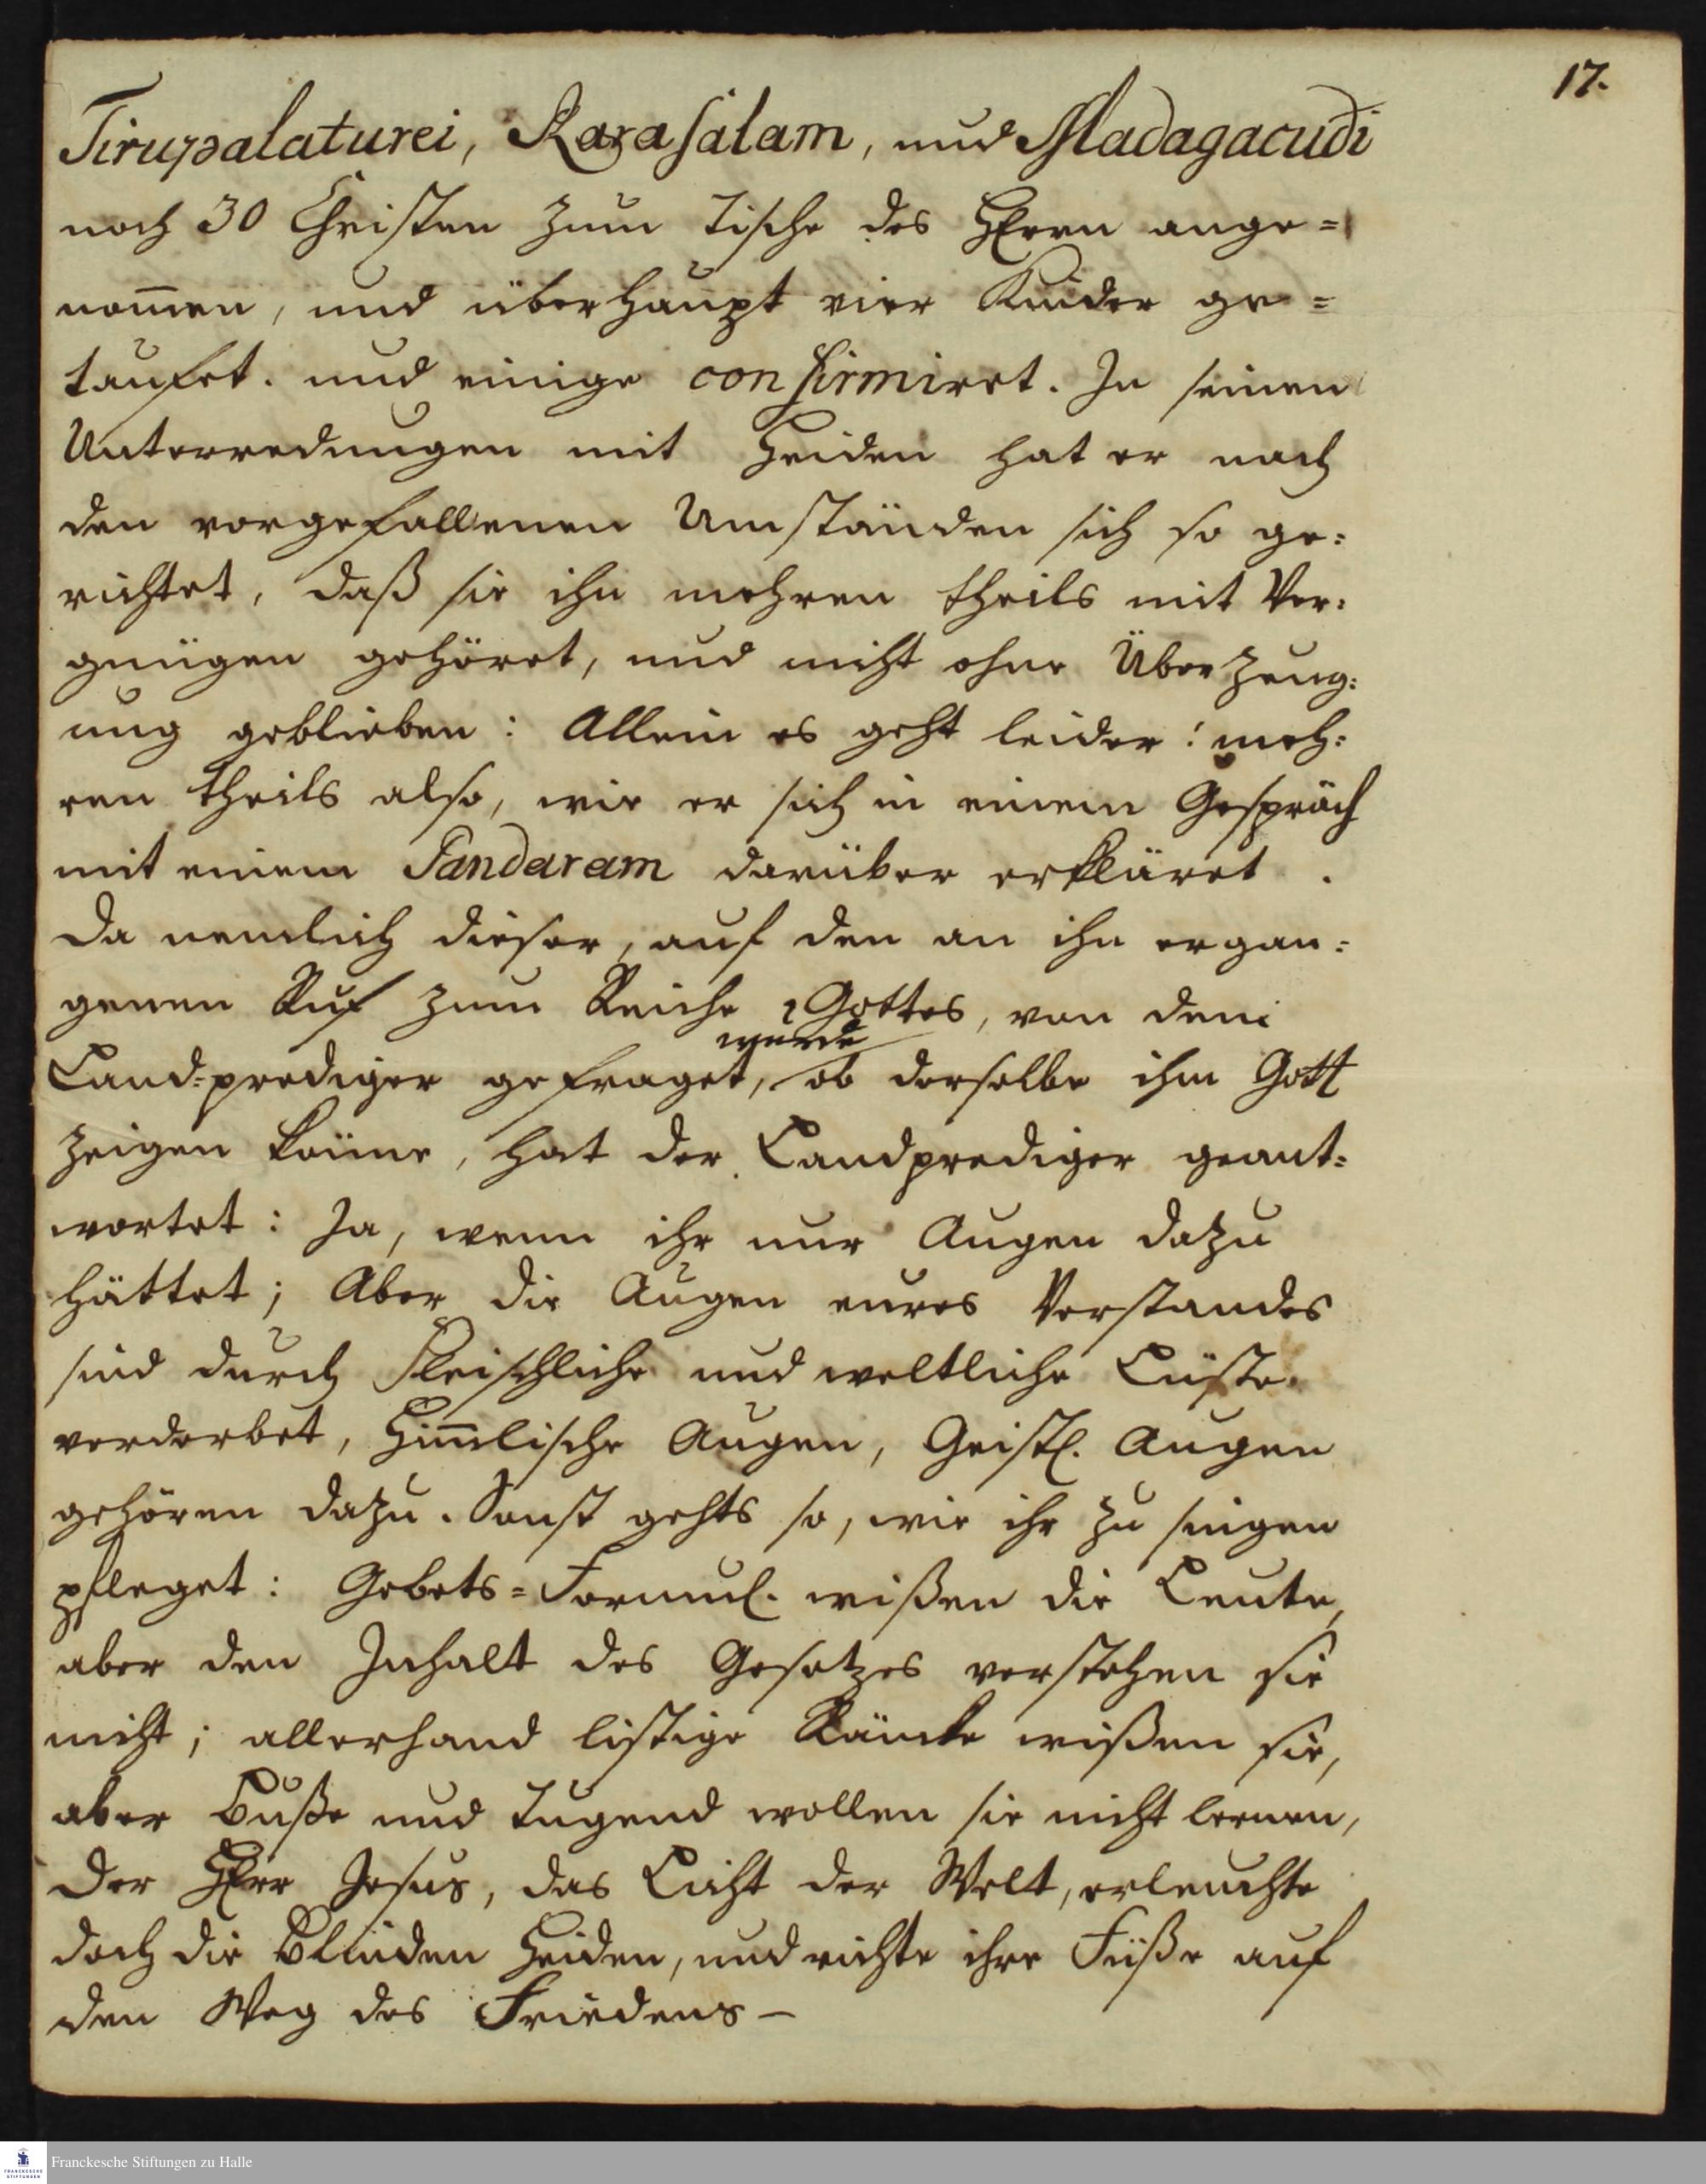 17.
Tirupalaturei, Rarasalam, und Madagacudi
noch 30 Christen zum Tische des HErrn ange=
nom̅en, und überhaupt vier Kinder ge=
taufet. und einige confirmiret. In seinen
Unterredungen mit Heiden hat er nach
den vorgefallenen Umständen sich so ge=
richtet, daß sie ihn mehren theils mit Ver=
gnügen gehöret, und nicht ohne Überzeug=
ung geblieben: Allein es geht leider! meh=
ren theils also, wie er sich in einem Gespräch
mit einem Pandaram darüber erkläret.
Da nemlich dieser, auf den an ihn ergan=
genen Ruf zum Reiche Gottes, von dem
wurde
Land=prediger gefraget, ob derselbe ihm Gott
zeigen könne, hat der Landprediger geant=
wortet: Ja, wenn ihr nur Augen dazu
hättet; Aber die Augen eures Verstandes
sind durch Fleischliche und weltliche Lüste
verderbet, Him̅lische Augen, Geistl. Augen
gehören dazu. Sonst gehts so, wie ihr zu singen
pfleget: Gebets=Formul. wißen die Leute,
aber den Inhalt des Gesetzes verstehen sie
nicht; allerhand listige Räncke wißen sie,
aber Buße und Tugend wollen sie nicht lernen,
Der HErr Jesus, das Licht der Welt, erleuchte
doch die Blinden Heiden, und richte ihre Füße auf
den Weg des Friedens –
FRANCKESCHE
STIFTUNGEN
Franckesche Stiftungen zu Halle